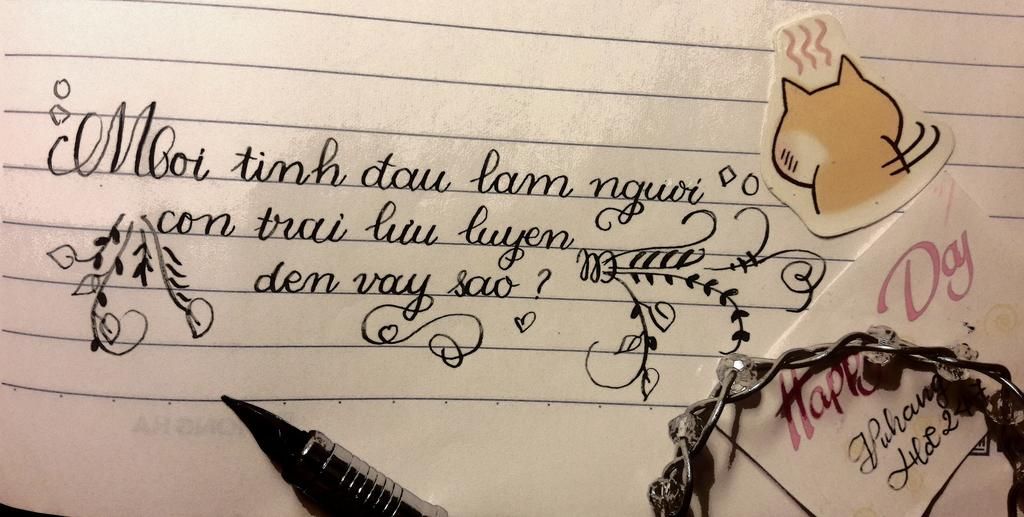 Moi tinh dau lam nguoi
con trai luu luyen
den vay sao?
Day
Happy